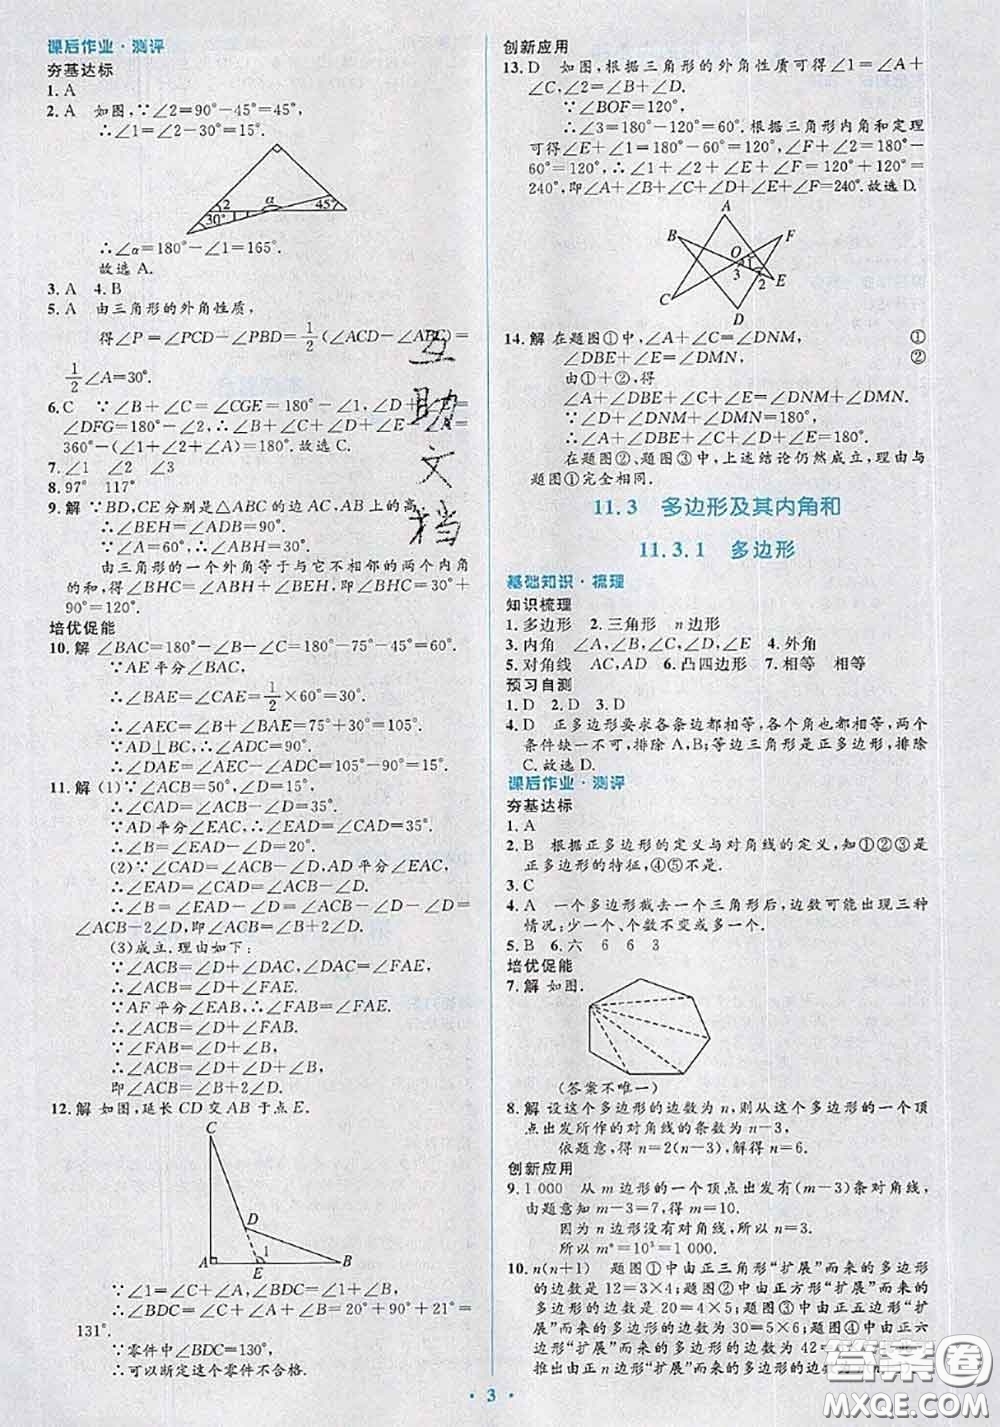 课后作业·测评
夯基达标
1. A
2. A 如图,∵∠2=90°-45°=45°,
∴∠1=∠2-30°=15°.
2 α 45°
30° 1
∴∠α=180°-∠1=165°.
故选 A.
3. A 4. B
5. A 由三角形的外角性质,
得∠P=∠PCD-∠PBD=1/2(∠ACD-∠ABC)=
1/2∠A=30°.
6. C ∵∠B+∠C=∠CGE=180°-∠1,∠D+∠E=
∠DFG=180°-∠2,∴∠B+∠C+∠D+∠E+∠A=
360°-(∠1+∠2+∠A)=180°.故选 C.
7. ∠1 ∠2 ∠3
8. 97° 117°
9. 解 ∵BD,CE分别是△ABC的边AC,AB上的高,
∴∠BEH=∠ADB=90°.
∵∠A=60°,∴∠ABH=30°.
由三角形的一个外角等于与它不相邻的两个内角
的和,得∠BHC=∠ABH+∠BEH=30°+
90°=120°.
培优促能
10. 解 ∠BAC=180°-∠B-∠C=180°-75°-45°=60°.
∵AE平分∠BAC,
∴∠BAE=∠CAE=1/2×60°=30°.
∴∠AEC=∠B+∠BAE=75°+30°=105°.
∵AD⊥BC,∴∠ADE=90°.
∴∠DAE=∠AEC-∠ADE=105°-90°=15°.
11. 解 (1)∵∠ACB=50°,∠D=15°,
∴∠CAD=∠ACB-∠D=35°.
∵AD平分∠EAC,∴∠EAD=∠CAD=35°.
∴∠B=∠EAD-∠D=20°.
(2)∵∠CAD=∠ACB-∠D,AD平分∠EAC,
∴∠EAD=∠CAD=∠ACB-∠D.
∴∠B=∠EAD-∠D=∠ACB-∠D-∠D=
∠ACB-2∠D,即∠ACB=∠B+2∠D.
(3)成立.理由如下:
∵∠ACB=∠D+∠DAC,∠DAC=∠FAE,
∴∠ACB=∠D+∠FAE.
∵AD平分∠FAE,∴∠FAB=∠FAE.
∴∠ACB=∠D+∠FAB.
∵∠FAB=∠D+∠B,
∴∠ACB=∠D+∠D+∠B,
即∠ACB=∠B+2∠D.
12. 解 如图,延长CD交AB于点E.
C
D
1
A E B
∵∠1=∠C+∠A,∠BDC=∠1+∠B,
∴∠BDC=∠C+∠A+∠B=20°+90°+21°=
131°.
∵零件中∠BDC=130°,
∴可以断定这个零件不合格.
创新应用
13. D 如图,根据三角形的外角性质可得∠1=∠A+
∠C,∠2=∠B+∠D.
∵∠BOF=120°,
∴∠3=180°-120°=60°.根据三角形内角和定理
可得∠E+∠1=180°-60°=120°,∠F+∠2=180°-
60°=120°,∴∠1+∠2+∠E+∠F=120°+120°=
240°,即∠A+∠B+∠C+∠D+∠E+∠F=240°.故选 D.
A
B F
O 1
3 2 E
C
D
14. 解 在题图①中,∠A+∠C=∠DNM, ①
∠DBE+∠E=∠DMN, ②
由①+②,得
∠A+∠DBE+∠C+∠E=∠DNM+∠DMN.
∵∠D+∠DNM+∠DMN=180°,
∴∠A+∠DBE+∠C+∠D+∠E=180°.
在题图②、题图③中,上述结论仍然成立,理由与
题图①完全相同.
11.3 多边形及其内角和
11.3.1 多边形
基础知识·梳理
知识梳理
1. 多边形 2. 三角形 n边形
3. 内角 ∠A,∠B,∠C,∠D,∠E 4. 外角
5. 对角线 AC,AD 6. 凸四边形 7. 相等 相等
预习自测
1. D 2. D 3. D
4. D 正多边形要求各条边都相等,各个角也都相等,两个
条件缺一不可,排除A,B;等边三角形是正多边形,排除
C.故选 D.
课后作业·测评
夯基达标
1. A
2. B 根据正多边形的定义与对角线的定义,知①②③是
正多边形的特征,④⑤不是.
3. C
4. A 一个多边形截去一个三角形后,边数可能出现三种
情况:少一个、个数不变或多一个.
5. B 6. 六 6 6 3
培优促能
7. 解 如图.
(答案不唯一)
8. 解 设这个多边形的边数为n,则从这个多边形的一个顶
点出发所作的对角线的条数为n-3,
依题意,得n=2(n-3),解得n=6.
创新应用
9. 1 000 从m边形的一个顶点出发有(m-3)条对角线,
由题意知m-3=7,得m=10.
因为n边形没有对角线,所以n=3.
所以mⁿ=10³=1 000.
10. n(n+1) 题图①中由正三角形“扩展”而来的多边形
的边数是12=3×4;题图②中由正方形“扩展”而来的
多边形的边数为20=4×5;题图③中由正五边形“扩
展”而来的多边形的边数为30=5×6;题图④中由正六
边形“扩展”而来的多边形的边数为42=
推出由正n边形“扩展”而来的多边形的边数为n
· 3 ·
互助文档
答案圈
MXQE.COM